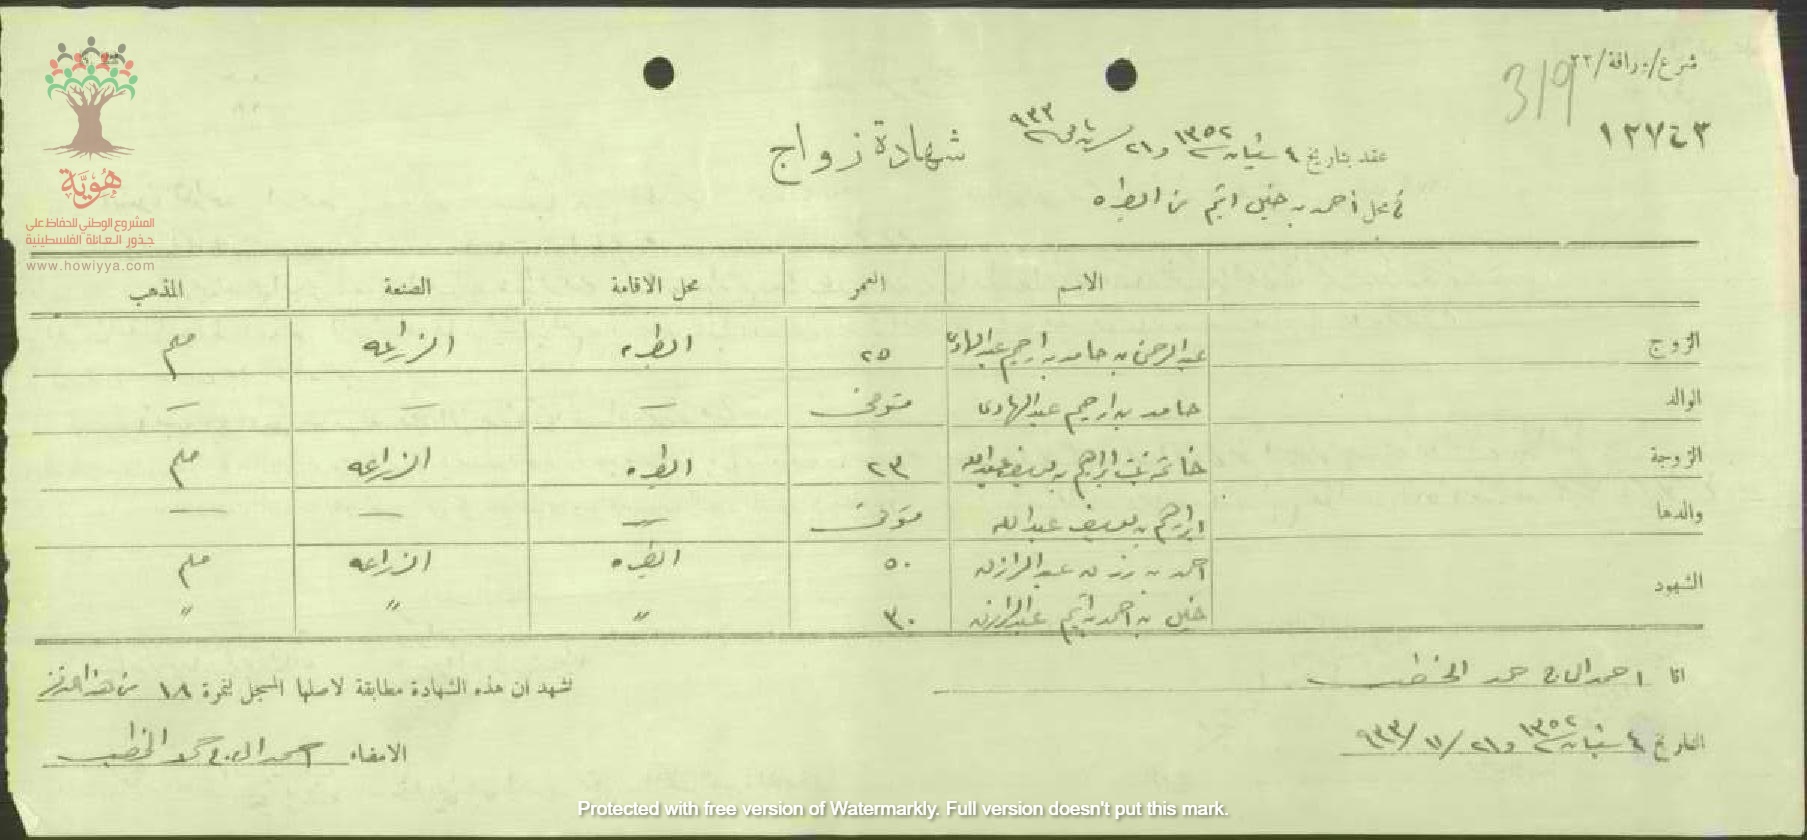 شرع/ورقة/٢٢
319
١٢٧٤٣
هُوِيَّة
المشروع الوطني للحفاظ على
جذور العائلة الفلسطينية
www.howiyya.com
شهادة زواج
عقد بتاريخ ٤ شعبان ١٣٥٢ و ٢١ تشرين ٩٣٣
في محل احمد بن خليل من الطيره
الاسم العمر محل الاقامة الصنعة المذهب
الزوج عبد الرحمن بن حامد بن ابراهيم عبد الهادي ٢٥ الطيره الزراعه مسلم
الوالد حامد بن ابراهيم عبد الهادي متوفى — — —
الزوجة بنت ابراهيم بن يوسف عبدالله ٢٣ الطيره الزراعه مسلم
والدها ابراهيم بن يوسف عبدالله متوفى — — —
الشهود احمد بن عبد الرازق ٥٠ الطيره الزراعه مسلم
خليل بن احمد عبد الرازق ٣٠ " " "
انا احمد الحاج حمد الخطيب
نشهد ان هذه الشهادة مطابقة لاصلها المسجل لنمرة ١٨ من هذا الدفتر
التاريخ ٤ شعبان ١٣٥٢ و ٢١/١١/٩٣٣
الامضاء احمد الحاج حمد الخطيب
Protected with free version of Watermarkly. Full version doesn't put this mark.